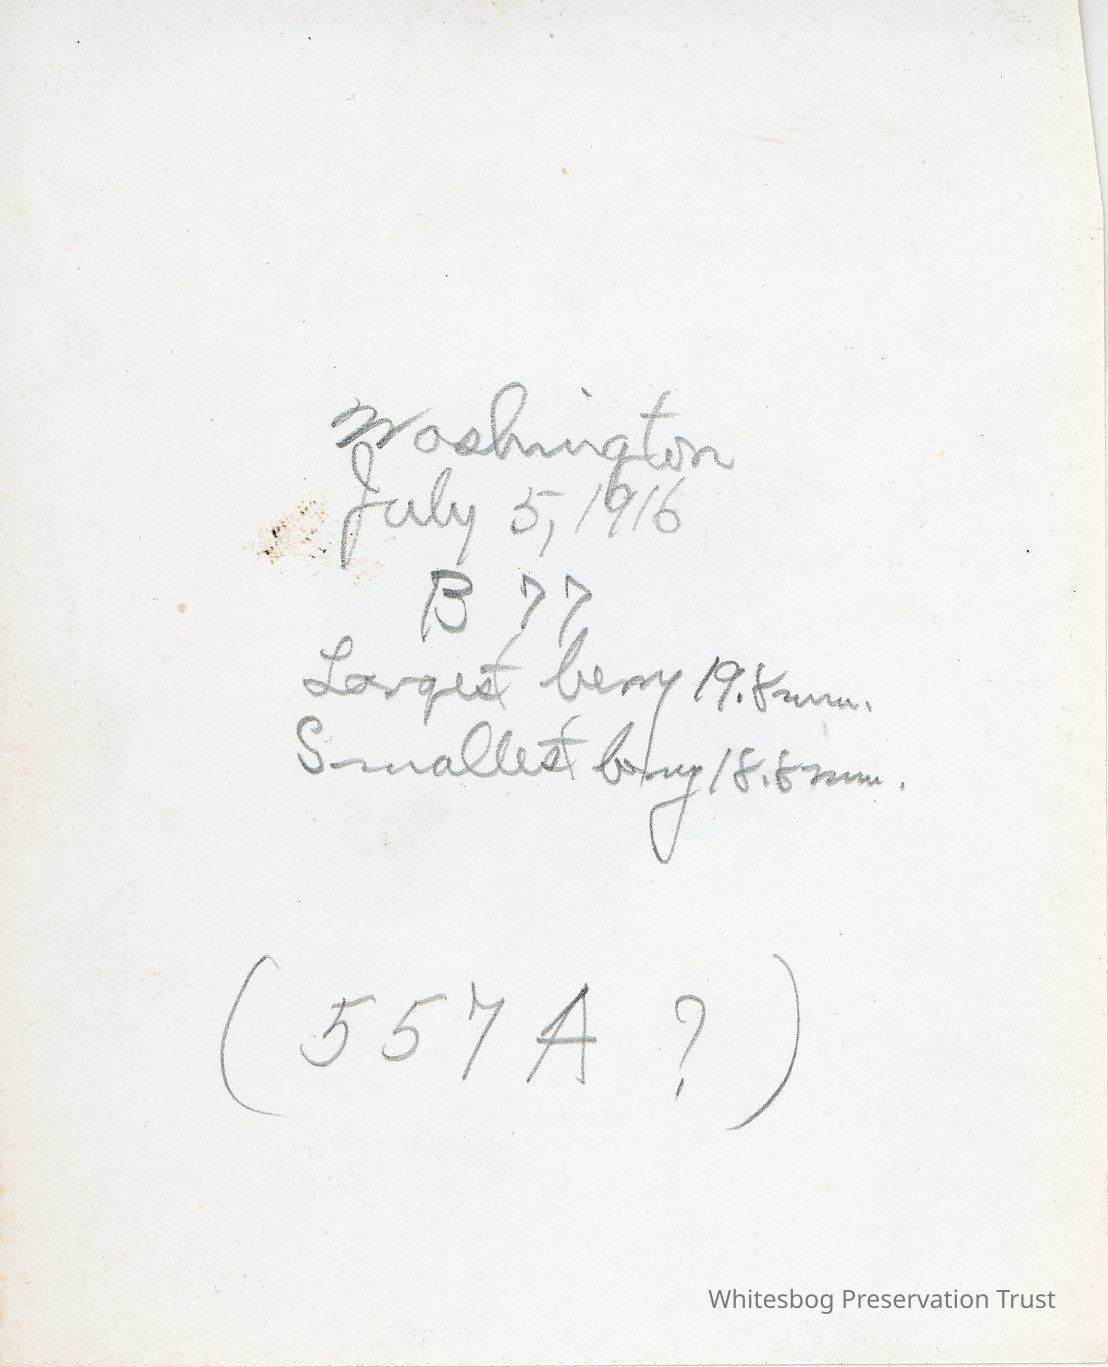 Washington
July 5, 1916
B 77
Largest berry 19.8 mm.
Smallest berry 18.8 mm.
(557A ?)
Whitesbog Preservation Trust